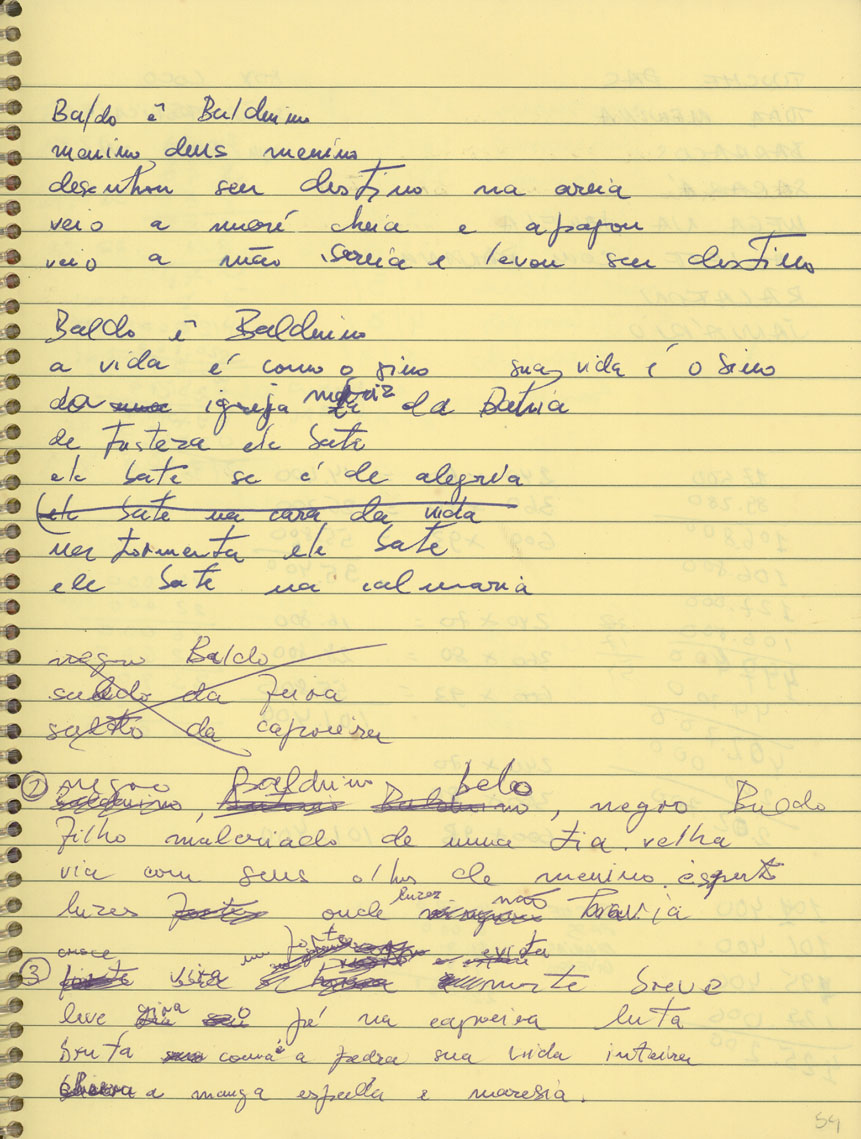 Baldo é Balduino
menino, deus menino
desenhou seu destino na areia
veio a maré cheia e apagou
veio a mão sereia e levou seu destino
Baldo é Balduino
a vida é como o sino sua vida é o sino
da igreja matriz da Bahia
de tristeza ele bate
ele bate se é de alegria
ele bate na cara da vida
na tormenta ele bate
ele bate na calmaria
negro Baldo
saldo da fera
salto da capoeira
② negro Balduino belo
balduino, Antonio Balduino, negro Baldo
filho malcriado de uma tia velha
via com seus olhos de menino esperto
luzes fortes onde luzes não havia
cresce
③ forte evita morte breve
leve gira o pé na capoeira luta
bruta como é a pedra sua vida inteira
cheira a manga espada e maresia.
54